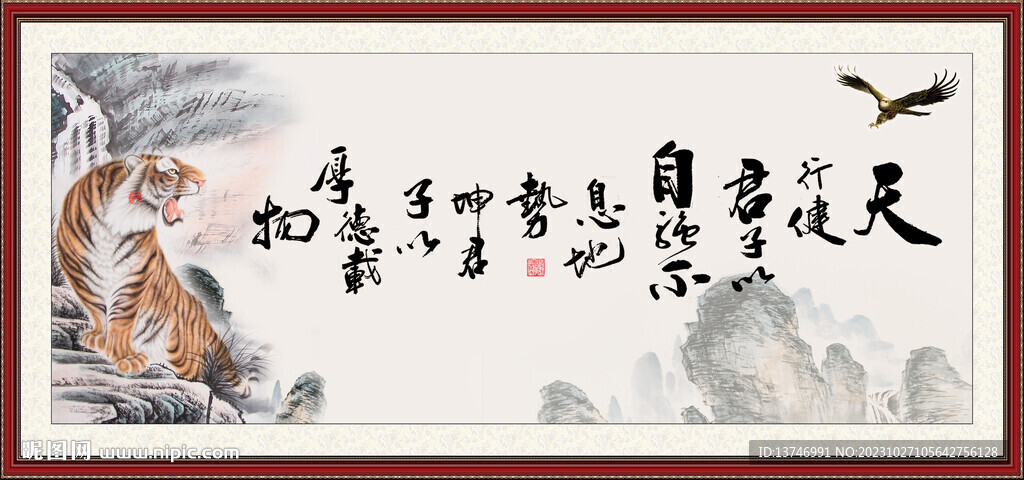 天
行健
君子以
自强不
息地
勢
坤君
子以
厚德載
物
昵图网 www.nipic.com
ID:13746991 NO:20231027105642756128